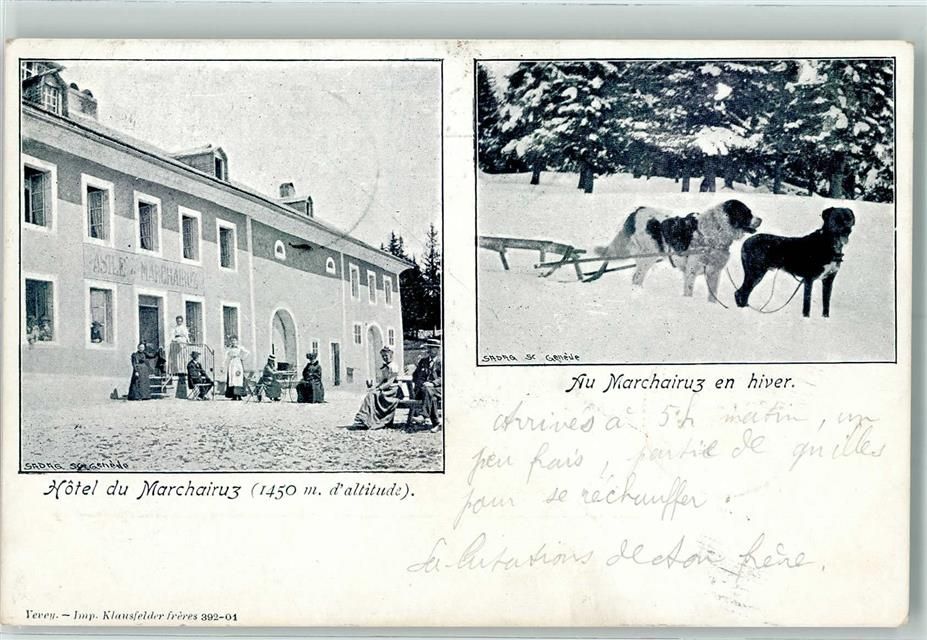 ASILE DE MARCHAIRUZ
SADAG Sc Genève
Hôtel du Marchairuz (1450 m. d'altitude).
SADAG Sc Genève
Au Marchairuz en hiver.
Arrivés à 5h matin, un
peu frais, partie de quilles
pour se réchauffer.
Salutations de ton frère.
Vevey. — Imp. Klausfelder frères 392-01